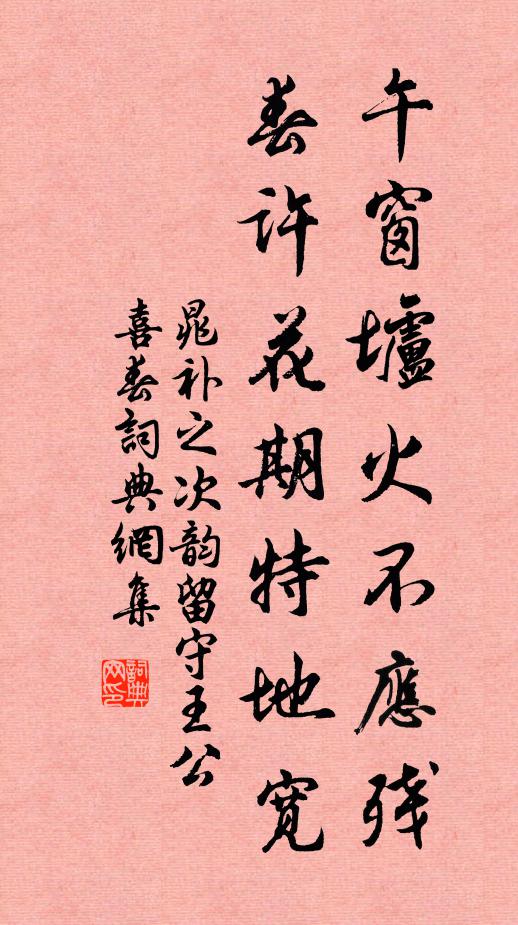 午窗壚火不應残
春许花期特地寛
晁补之次韵留守王公
喜春詞典網集
詞典网印